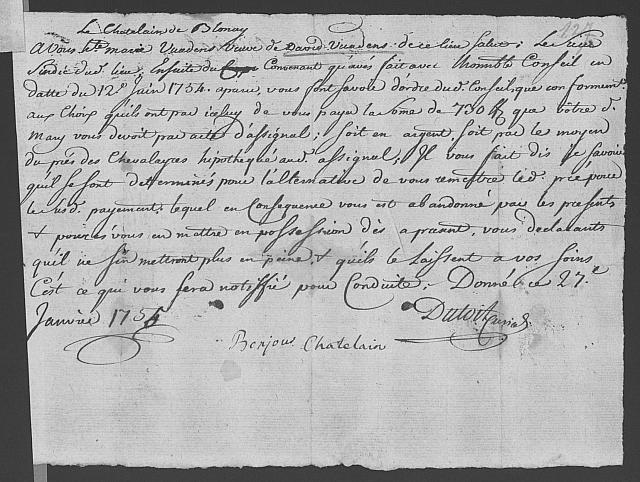 Le Chatelain de Blonay
A Vous hte marie Vuadens Veuve de David Vuadens de ce lieu salut; Le Sieur
Sindic dud. lieu, Ensuite du Convenant qu'avés fait avec l'honnble Conseil en
datte du 12e Juin 1754. aparu, vous font savoir d'ordre dud. Conseil, que conformemt.
aux Choix qu'ils ont par iceluy de vous payer la some de 730 que vôtre d.
Mary vous devoit par acte d'assignal; soit en argent, soit par le moyen
du prés des Chevalayres hipothequé aud. assignal; Il vous fait dis je savoir
qu'il se sont determinés pour l'alternative de vous remettre led. pré pour
le susd. payement; lequel en Consequence vous est abandonné par les presents
& pouvés vous en mettre en possession dès a present, vous declarants
qu'il ne s'en mettront plus en peine, & qu'ils le laissent a vos soins
C'est ce qui vous sera notiffié pour Conduite. Donné ce 27e
Janvier 1755
Dutoit Curial
Bonjour Chatelain